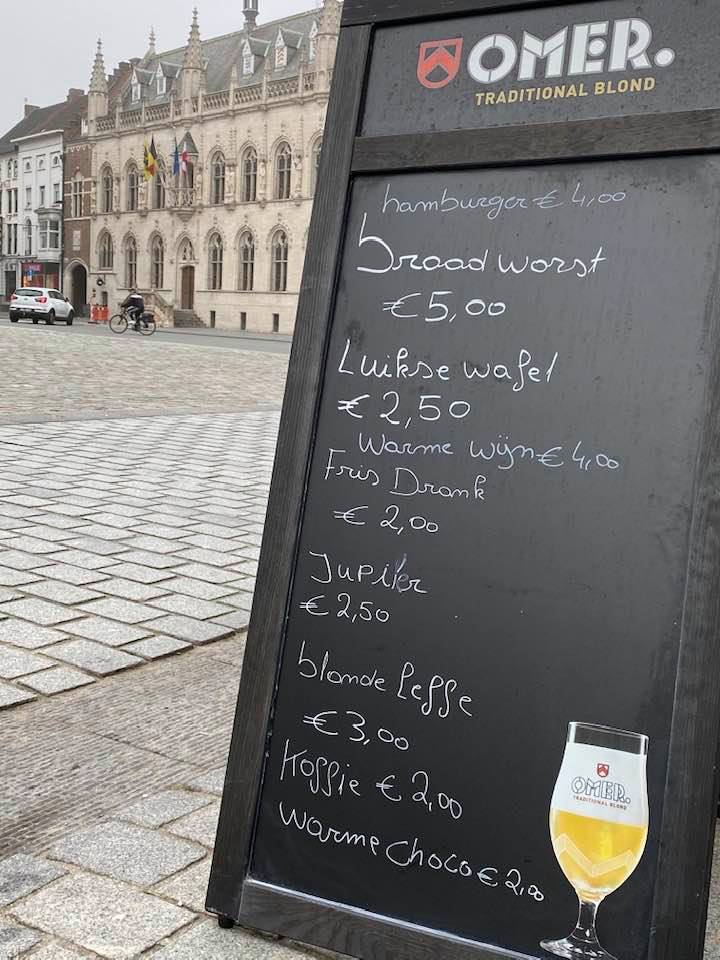 OMER.
TRADITIONAL BLOND
hamburger € 4,00
braadworst
€ 5,00
Luikse wafel
€ 2,50
Warme wijn € 4,00
Fris Drank
€ 2,00
Jupiler
€ 2,50
blonde leffe
€ 3,00
Koffie € 2,00
warme choco € 2,00
OMER.
TRADITIONAL BLOND